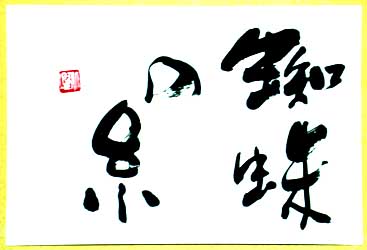 蜘蛛
の糸